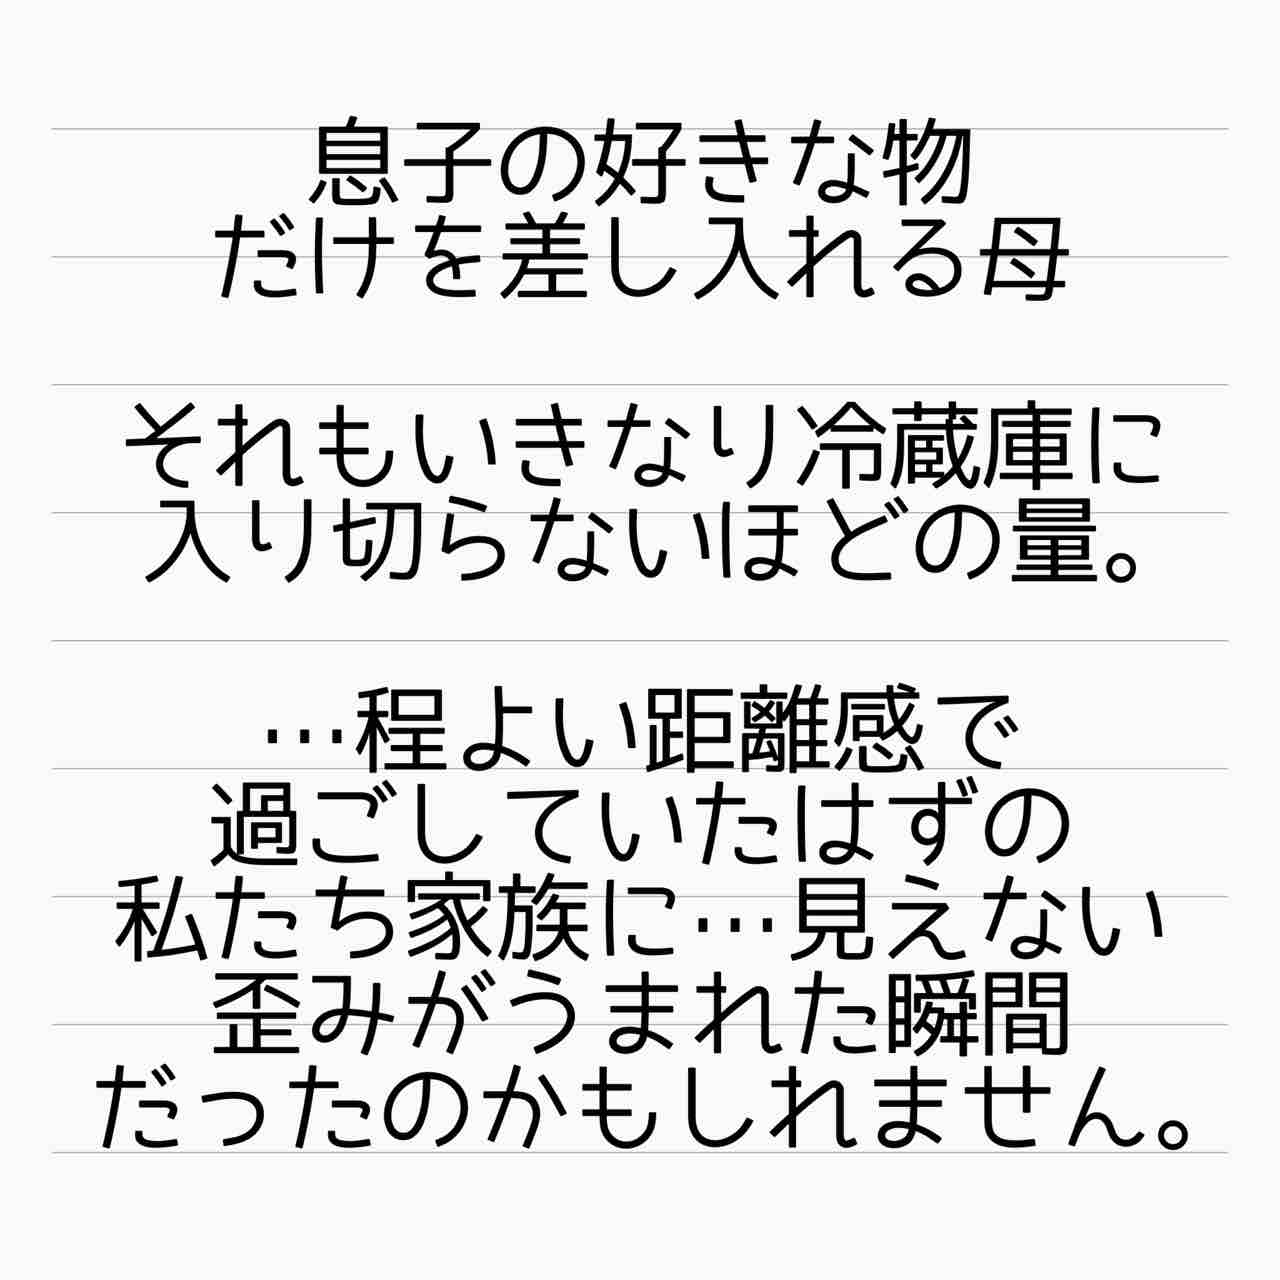 息子の好きな物
だけを差し入れる母
それもいきなり冷蔵庫に
入り切らないほどの量。
…程よい距離感で
過ごしていたはずの
私たち家族に…見えない
歪みがうまれた瞬間
だったのかもしれません。